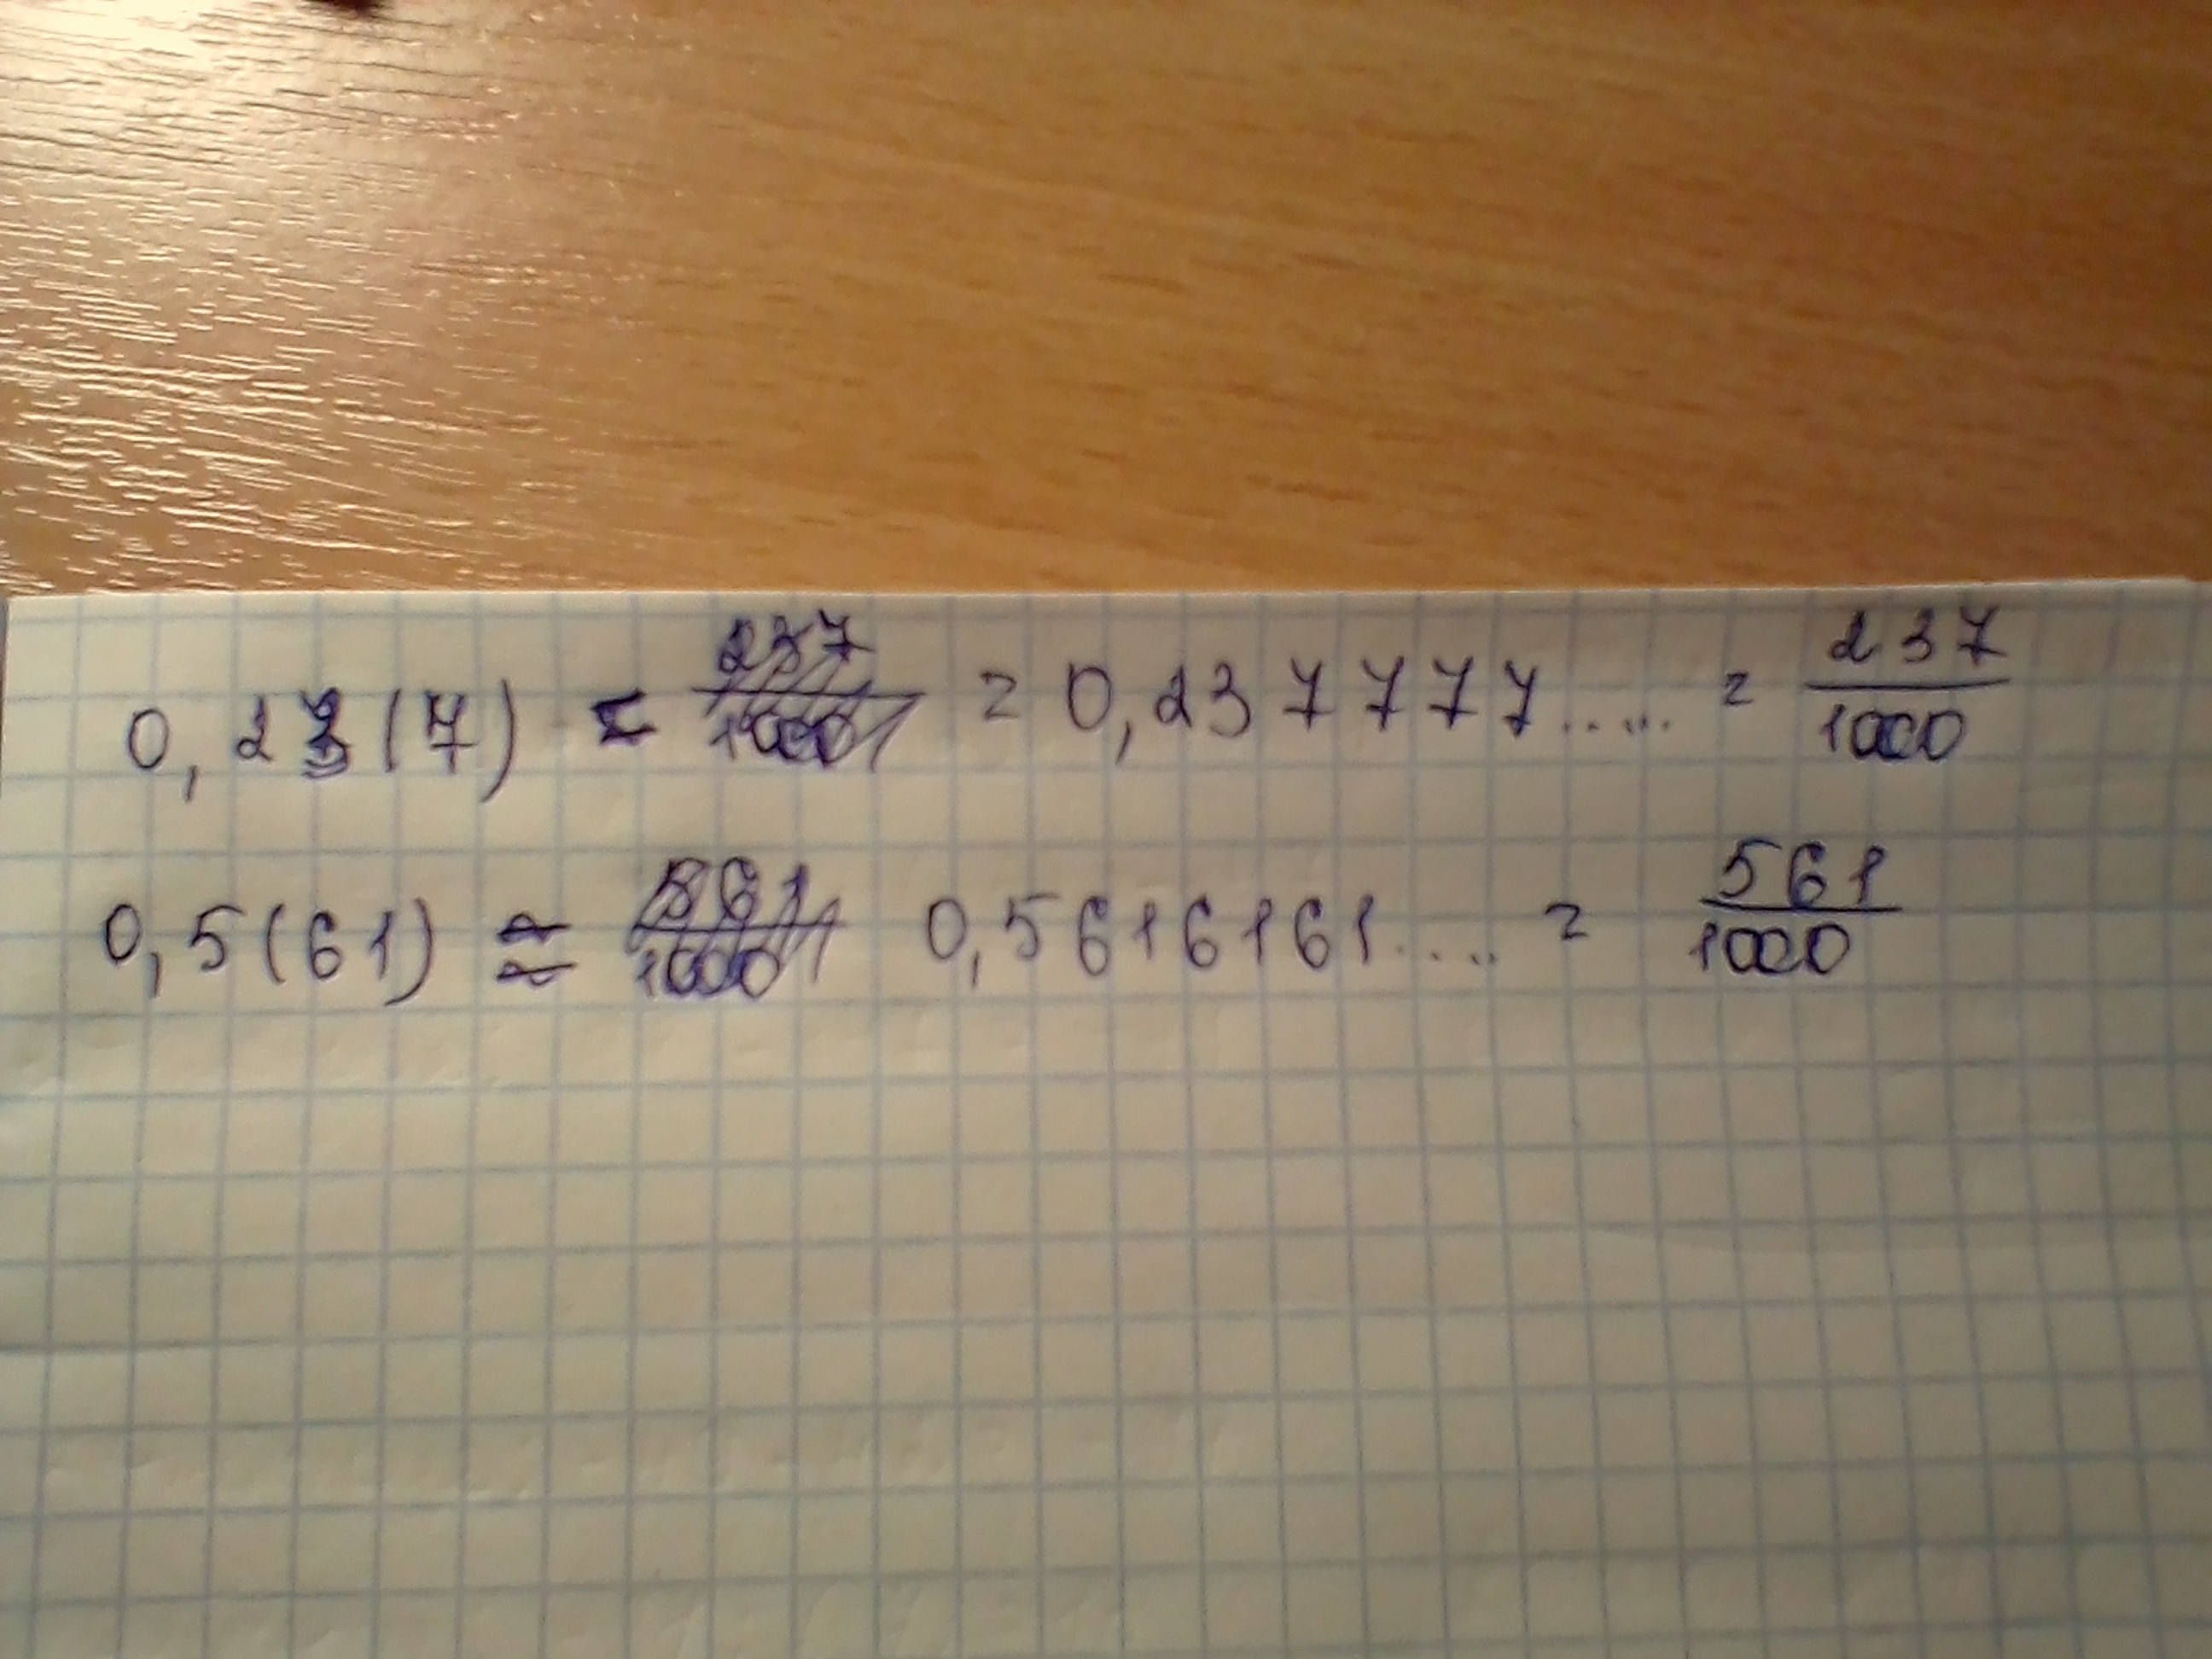 0,23(7) = 237/1000 = 0,237777..... = 237/1000
0,5(61) ≈ 561/1000 0,5616161..... = 561/1000